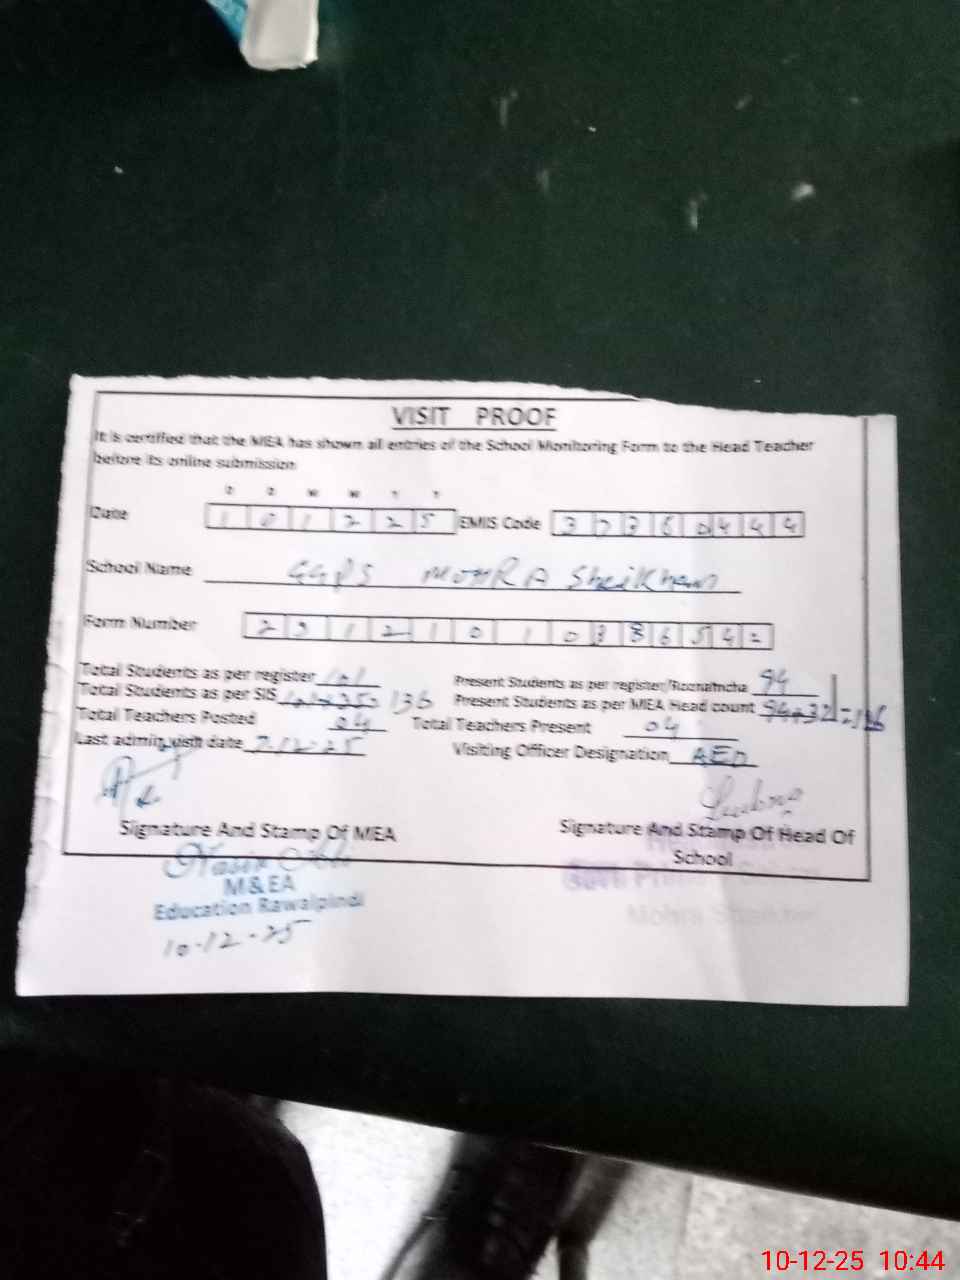 VISIT PROOF
It is certified that the MEA has shown all entries of the School Monitoring Form to the Head Teacher
before its online submission
D D M M Y Y
Date 1 0 1 2 2 5 EMIS Code 3 7 3 6 0 4 4 4
School Name GGPS MOHRA Sheikhan
Form Number
Total Students as per register 101
Present Students as per register/Roznamcha 94
Total Students as per SIS 101+35= 136
Present Students as per MEA Head count 94+32=126
Total Teachers Posted 04 Total Teachers Present 04
Last admin visit date 7-12-25 Visiting Officer Designation AEO
Signature And Stamp Of MEA
Signature And Stamp Of Head Of
School
M&EA
Education Rawalpindi
10-12-25
Mohra
10-12-25 10:44